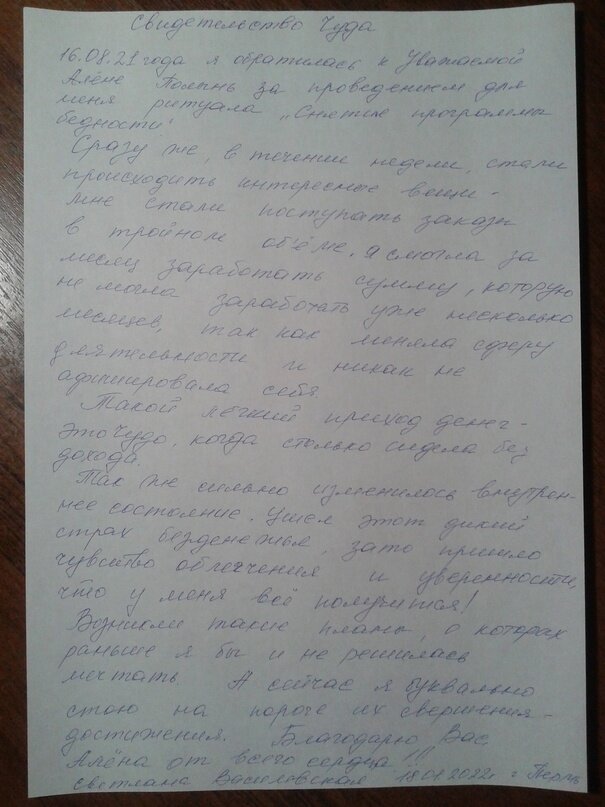 Свидетельство Чуда
16.08.21 года я обратилась к Уважаемой
Алёне Полынь за проведением для
меня ритуала „Снятие программы
бедности"
Сразу же, в течении недели, стали
происходить интересные вещи -
мне стали поступать заказы
в тройном объёме. я смогла за
месяц заработать сумму, которую
не могла заработать уже несколько
месяцев, так как меняла сферу
деятельности и никак не
афишировала себя.
Такой лёгкий приход денег -
это Чудо, когда столько сидела без
дохода.
Так же сильно изменилось внутрен-
нее состояние. Ушел этот дикий
страх безденежья, зато пришло
чувство облегчения и уверенности,
что у меня всё получится!
Возникли такие планы, о которых
раньше я бы и не решилась
мечтать. А сейчас я буквально
стою на пороге их свершения-
достижения. Благодарю Вас
Алёна от всего сердца!!!
Светлана Василевская 18.01.2022г г Пермь